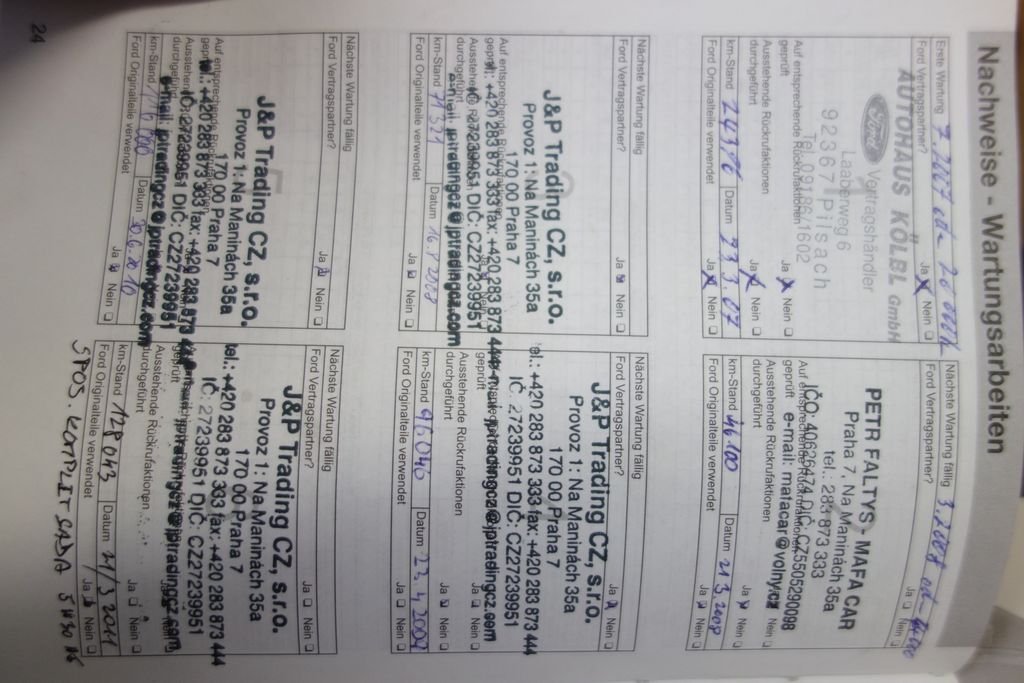 Nachweise - Wartungsarbeiten
Erste Wartung
Ford Vertragspartner? Ja Nein
AUTOHAUS KÖLBL GmbH
Ford Vertragshändler
Laaberweg 6
92367 Pilsach
Tel. 09186/1602
Auf entsprechende Rückrufaktionen
geprüft Ja Nein
Ausstehende Rückrufaktionen
durchgeführt Ja Nein
km-Stand 24376 Datum 23.3.07
Ford Originalteile verwendet Ja Nein
Nächste Wartung fällig
Ford Vertragspartner? Ja Nein
PETR FALTYS - MAFA CAR
Praha 7, Na Maninách 35a
tel.: 283 873 333
IČO: 40626474, DIČ: CZ5505290098
e-mail: matacar@volny.cz
Auf entsprechende Rückrufaktionen
geprüft Ja Nein
Ausstehende Rückrufaktionen
durchgeführt Ja Nein
km-Stand 46100 Datum 21.3.2008
Ford Originalteile verwendet Ja Nein
Nächste Wartung fällig
Ford Vertragspartner? Ja Nein
J&P Trading CZ, s.r.o.
Provoz 1: Na Maninách 35a
170 00 Praha 7
tel.: +420 283 873 333 fax: +420 283 873 444
IČ: 27239951 DIČ: CZ27239951
e-mail: jptradingcz@jptradingcz.com
Auf entsprechende Rückrufaktionen
geprüft
Ausstehende Rückrufaktionen
durchgeführt
km-Stand 71321 Datum 16.9.2008
Ford Originalteile verwendet Ja Nein
Nächste Wartung fällig
Ford Vertragspartner? Ja Nein
J&P Trading CZ, s.r.o.
Provoz 1: Na Maninách 35a
170 00 Praha 7
tel.: +420 283 873 333 fax: +420 283 873 444
IČ: 27239951 DIČ: CZ27239951
e-mail: jptradingcz@jptradingcz.com
geprüft Ja Nein
Ausstehende Rückrufaktionen
durchgeführt Ja Nein
km-Stand 96.040 Datum 22.4.2009
Ford Originalteile verwendet Ja Nein
Nächste Wartung fällig
Ford Vertragspartner? Ja Nein
J&P Trading CZ, s.r.o.
Provoz 1: Na Maninách 35a
170 00 Praha 7
tel.: +420 283 873 333 fax: +420 283 873 444
IČ: 27239951 DIČ: CZ27239951
e-mail: jptradingcz@jptradingcz.com
Auf entsprechende Rückrufaktionen
geprüft
Ausstehende Rückrufaktionen
durchgeführt
km-Stand Datum
Ford Originalteile verwendet Ja Nein
Nächste Wartung fällig
Ford Vertragspartner? Ja Nein
J&P Trading CZ, s.r.o.
Provoz 1: Na Maninách 35a
170 00 Praha 7
tel.: +420 283 873 333 fax: +420 283 873 444
IČ: 27239951 DIČ: CZ27239951
jptradingcz@jptradingcz.com
geprüft
Ausstehende Rückrufaktionen
durchgeführt Ja Nein
km-Stand 128043 Datum 21/3 2011
Ford Originalteile verwendet Ja Nein
24